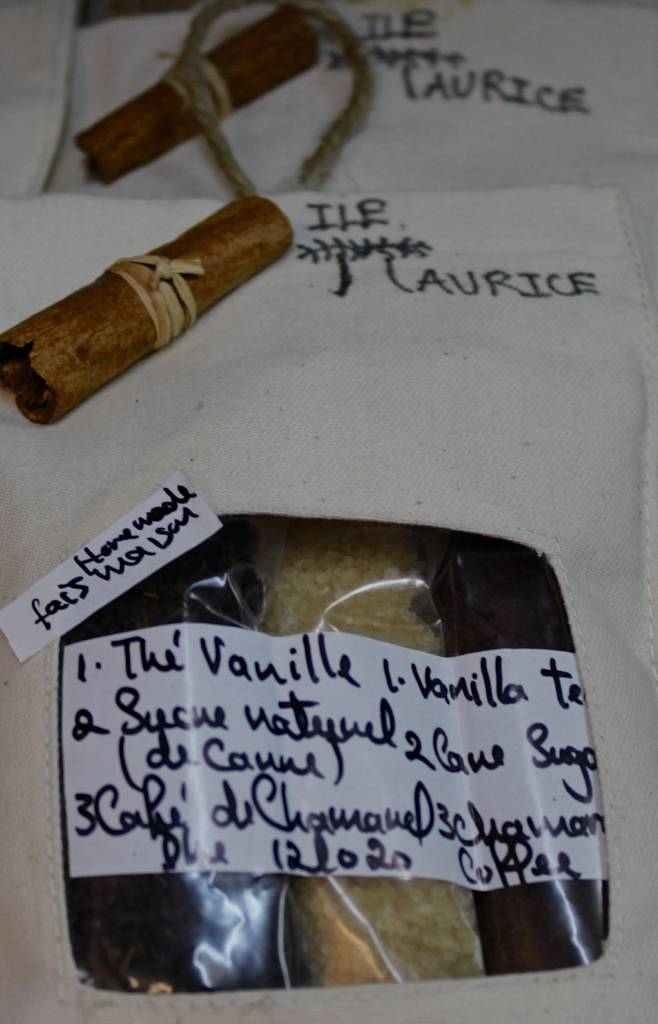 ILE
MAURICE
ILE
MAURICE
Homemade
fais maison
1. Thé Vanille
2 Sucre naturel
(de Canne)
3 Café de Chamarel
1. Vanilla te
2 Cane Suga
3 Chamar
Coffee